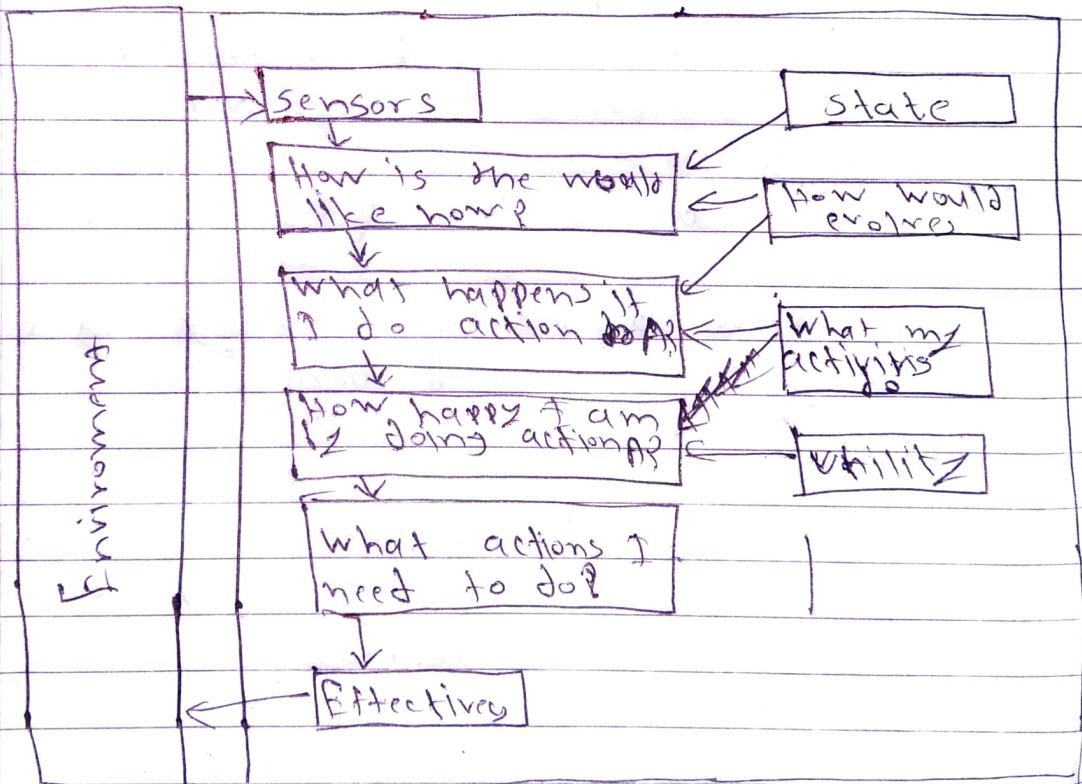 Environment
sensors
state
How is the would
like now?
How would
evolves
What happens if
I do action A?
What my
activitis
do
How happy I am
by doing action A?
Utility
What actions I
need to do?
Effectives